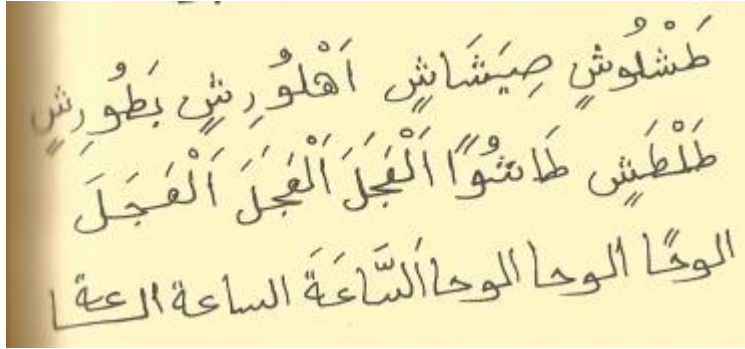 طَشْلُوشٍ صِيَشَاشٍ اَهْلُورِشٍ بَطُورِشٍ
طَلْطَشٍ طَانشُوًا اَلْفَجَلَ اَلْفَجَلَ اَلْفَجَلَ
الوحًا الوحا الوحا اَلسَّاعَةَ الساعة الساعة